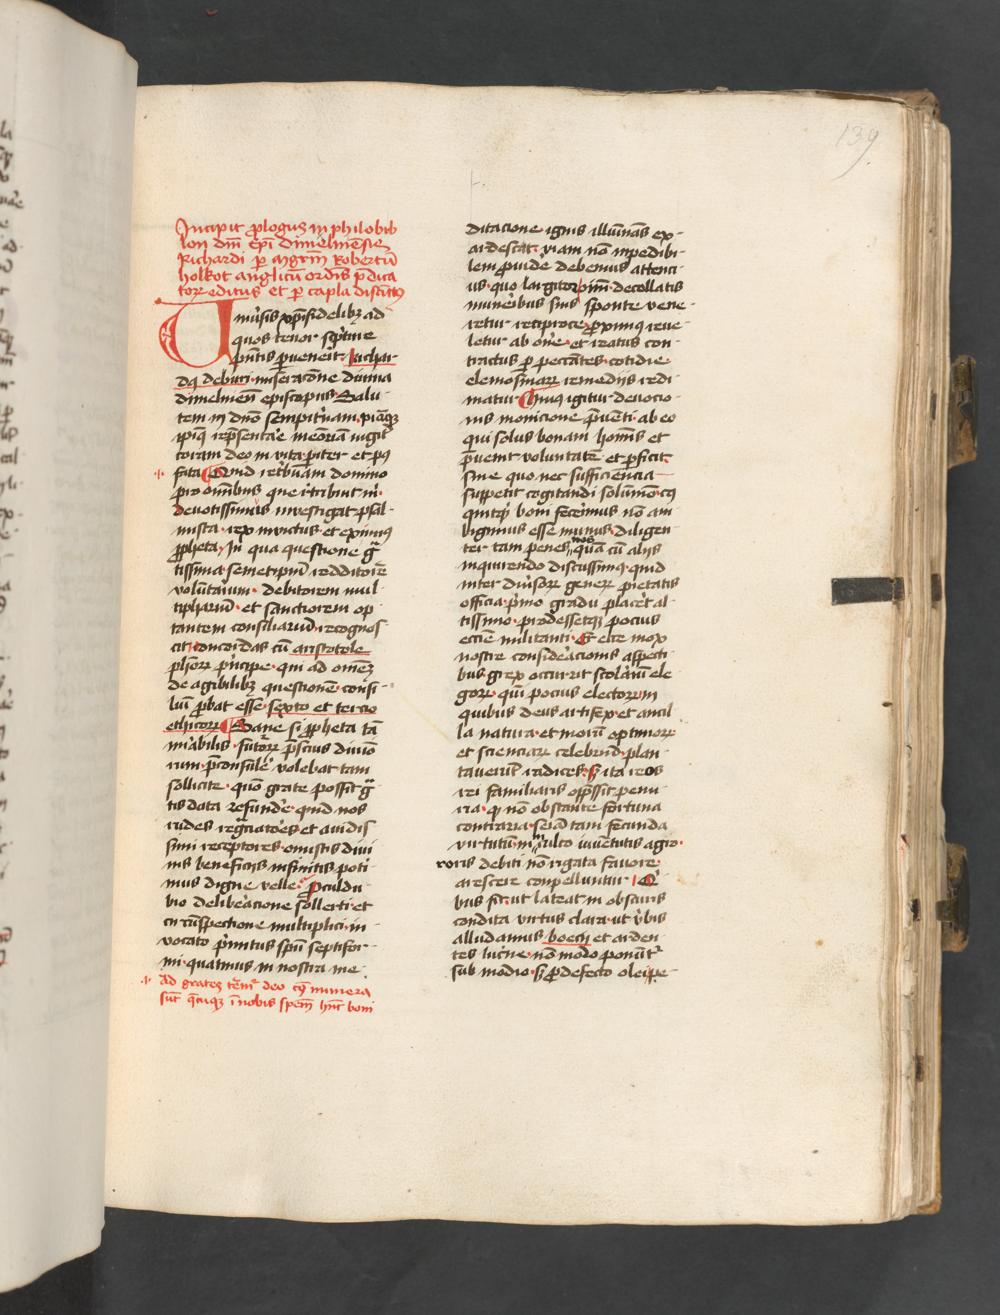 139
Incipit ꝓlogus in philobib
lon dn̄i ep̄i dimelmēsis
Richardi ꝑ mgrm̄ Robertū
holkot anglicū ordīs p̄dica
toꝝ editus et ꝑ capl̓a distīctꝰ
Uniuˀsis xp̄ifidelibꝫ ad
quos tenor sc̓pture
pn̄tis ꝑuenerit. Richar-
dꝰ de buri miserac̄one diuīa
dimelmen̄ episcopus Salu-
tem in dn̄o sempit̓nam. piāqꝫ
ipiꝰ rep̄senta͛e memoriā iugit̓
coram deo in vita pit̓er et pꝰ
fata Quid ret͛buam domino
pro om̄ibus que ret̓buit m̓.
deuotissimus inuestigat psal-
mista. rex inuictus. et eximiꝰ
ꝓpheta. In qua questione gͣ
tissima. semetipm̄ redditorē
voluntarium. debitorem mul-
tipharium. et sanctiorem op-
tantem consiliarium recognos
cit. concordās cū aristotele
ph̄oꝝ pͥncipe. qui ad omēꝫ
de agibilibꝫ questionē. consi-
liū ꝓbat esse. sexto et tercio
ethicoꝝ Sane si ꝓpheta tā
mirabilis. futuroꝝ p̄scius diuīo
rum. p̄consulere volebat tam
sollicite. quō grate possit gͣ
tis data refundere. quid nos
rudes regr̄ciatores et auidis
simi receptores. onustis diui
nis beneficijs infinitis poti-
mus digne velle. ꝓculdu-
bio deliberacione sollerti. et
circūspectione multiplici. in-
vocato pͥmitus sp̄u septifor-
mi. quatinus in nostra me-
ad grates tēm̄ deo cꝰ munera
sūt q̄cūqꝫ ī nobis spem̄ hn̄t boni
ditacione ignis illūnās ex-
ardescat. viam nō inpedibi-
lem ꝓuide debemus attenti-
us. quo largitor om̄iū. de collatis
muneribus suis sponte vene-
retur reciproce. proximꝰ reue-
letur ab oner̓e. et reatus con-
tractus ꝑ peccātes. cotidie
elemosinaꝝ remedijs redi-
matur Huiꝰ igitur deuocio-
nis monicione p̄uēti. ab eo
qui solus bonam hominis et
p̄uenit voluntatē. et ꝑficit
sine quo nec sufficiencia
suppetit cogitandi solūmō. cꝰ
quitqͥd boni fecerimus nō am
bigimus esse munus. diligen
ter tam penes nos quā cū alijs
inquirendo discussimꝰ. quid
inter diuersoꝝ geneꝝ pietatis
officia. pͥmo gradu placeret al-
tissimo. prodessetqꝫ pocius
eccl̄ie militanti. Et ecce mox
nostre consideracionis aspecti
bus. grex occurrit scolariū ele
goꝝ. quī pocius electoꝝ in
quibus deus artifex. et ancil-
la natura. et morū optimoꝝ
et scienciaꝝ celebriū. plan-
tauerūt radices. sꝫ ita reos
rei familiaris opp̄ssit penu-
ria. qꝫ nō obstante fortuna
contraria. seīa tam fecunda
virtutum. in multo iuuētutis agro.
roris debiti nō rigata fauore.
arescere conpelluntur. Qͥ
bus fit. ut lateat in obscuris
condita virtus clara. ut v̓bis
alludamus. boecij. et arden-
tes lucˀne. nō modo ponūtˀ
sub modio. sꝫ p̄ defecto olei pe-